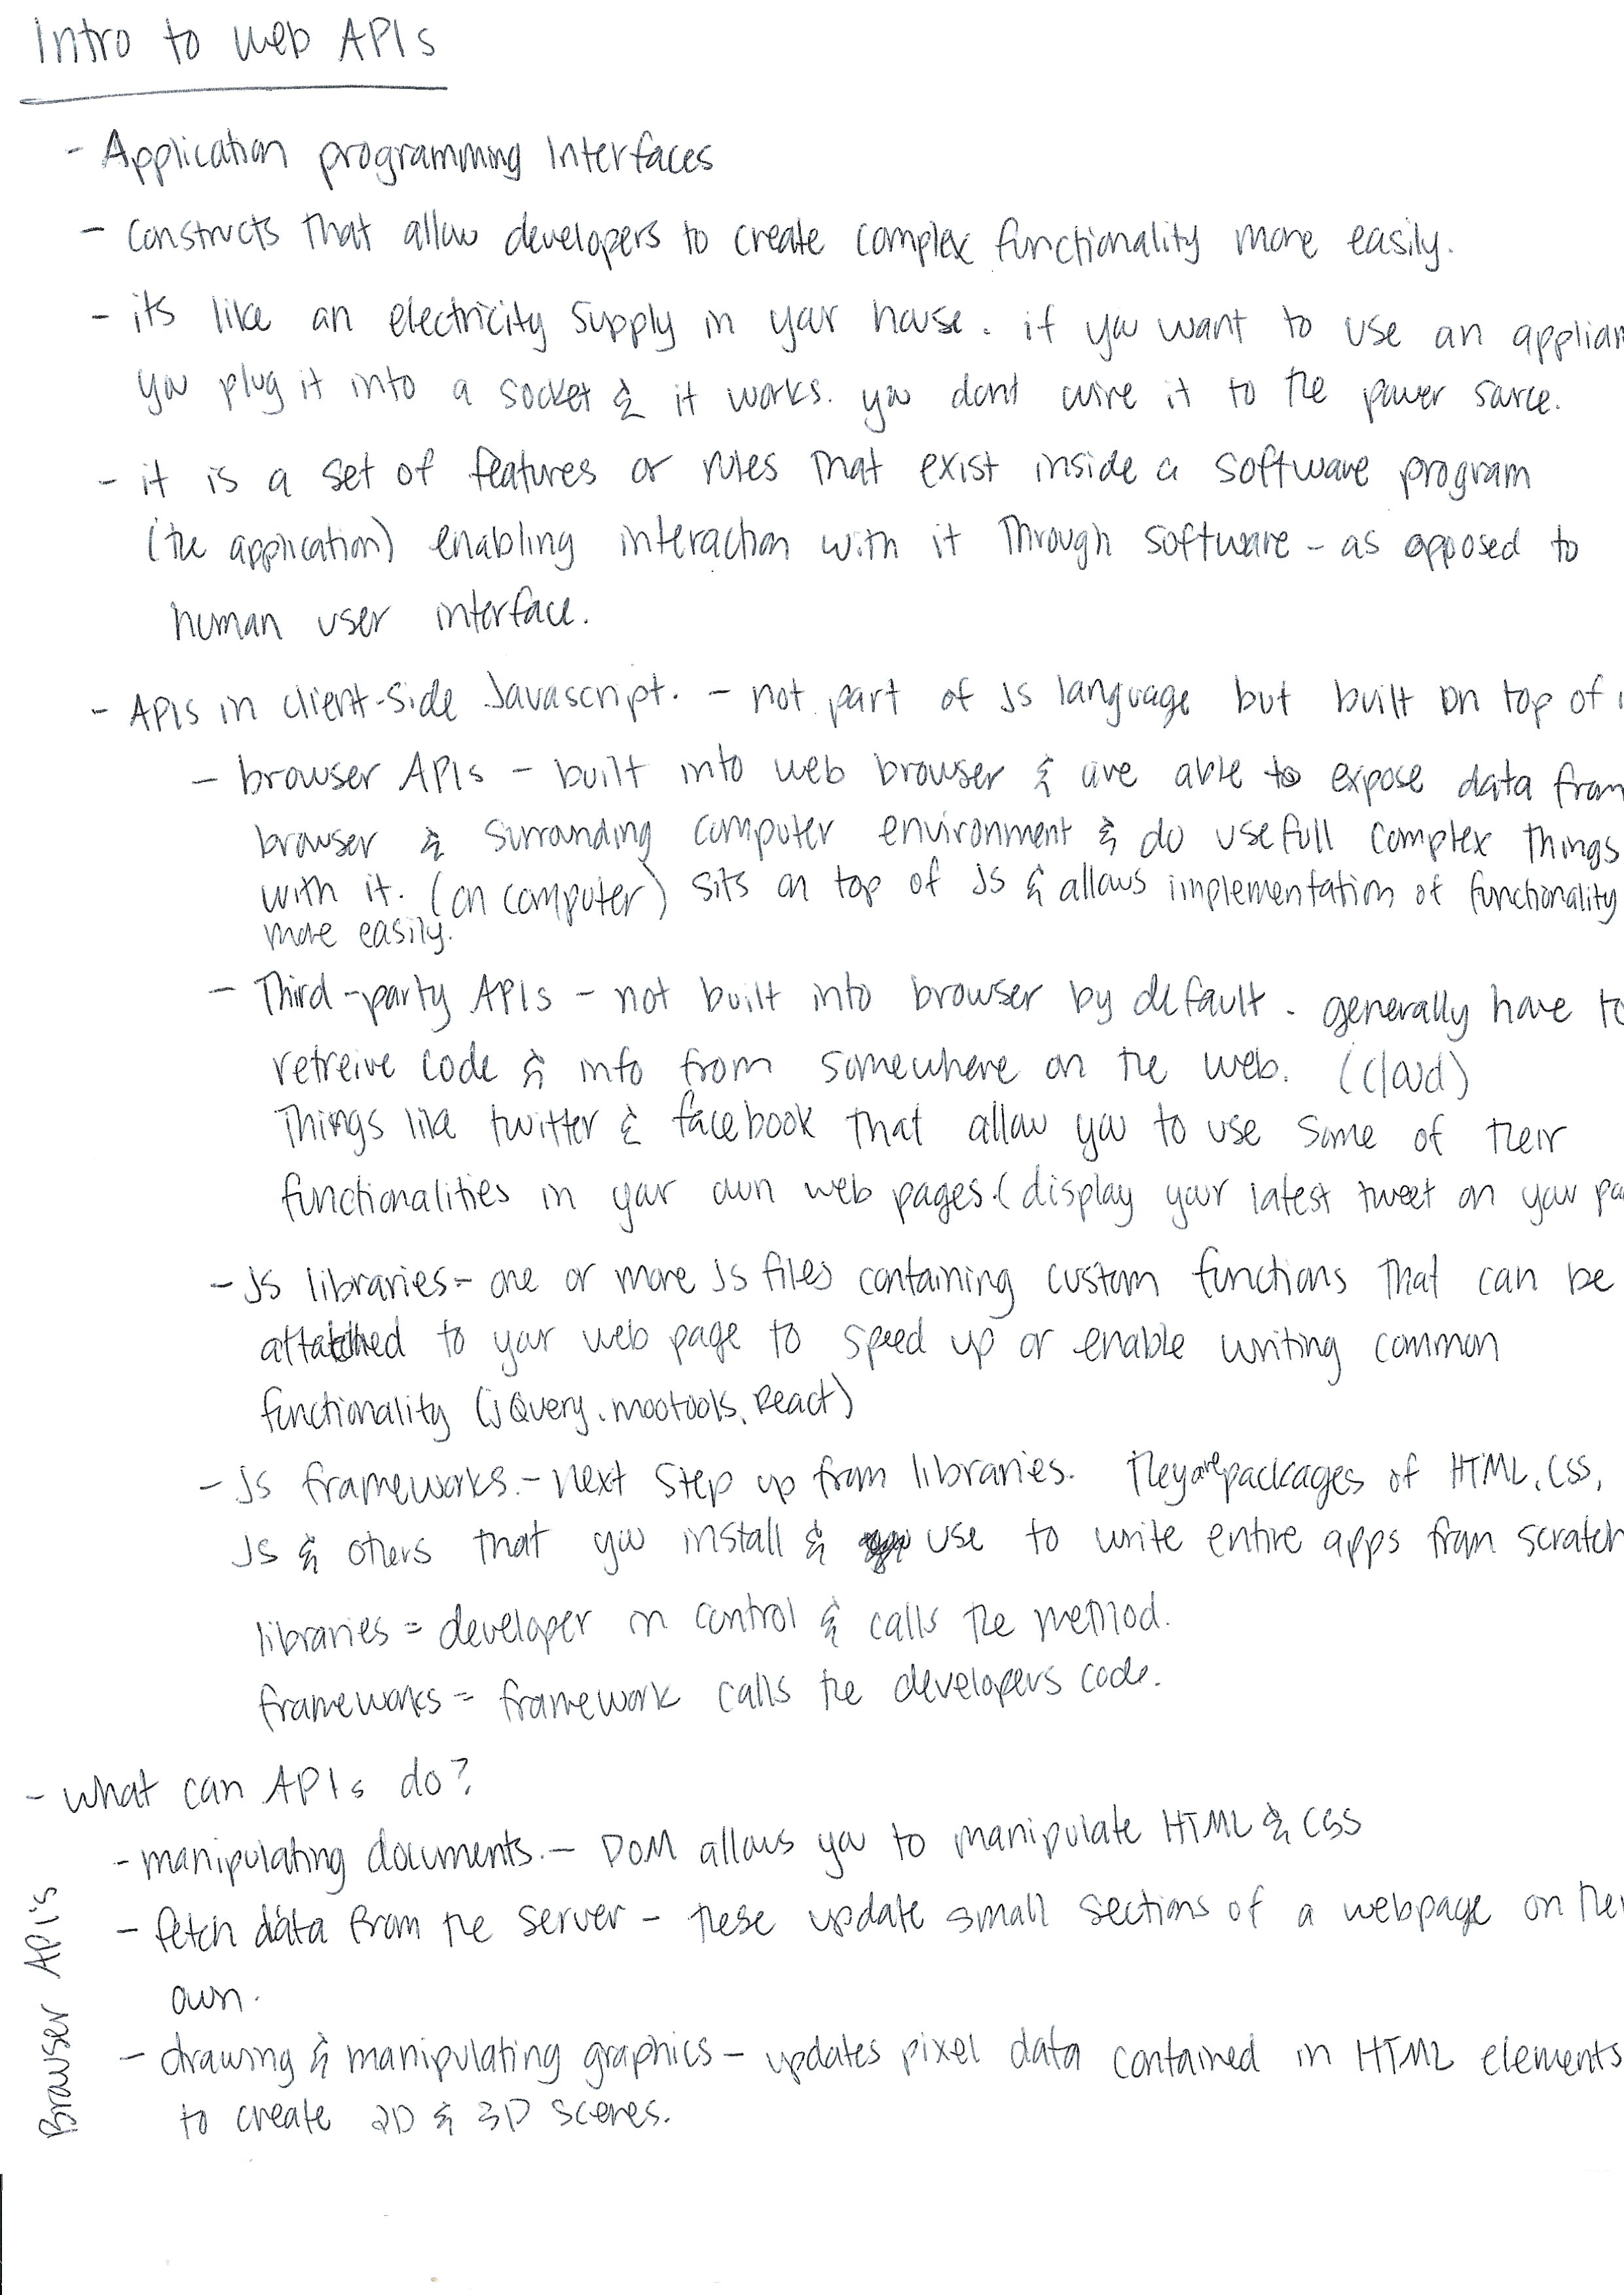 Intro to Web APIs
- Application programming Interfaces
- constructs that allow developers to create complex functionality more easily.
- its like an electricity supply in your house. if you want to use an applian
you plug it into a socket & it works. you dont wire it to the power source.
- it is a set of features or rules that exist inside a software program
(the application) enabling interaction with it through software - as opposed to
human user interface.
- APIs in client-side Javascript. - not part of JS language but built on top of i
- browser APIs - built into web browser & are able to expose data from
browser & surrounding computer environment & do usefull complex things
with it. (on computer) sits on top of JS & allows implementation of functionality
more easily.
- Third-party APIs - not built into browser by default. generally have to
retreive code & info from somewhere on the web. (cloud)
Things like twitter & facebook that allow you to use some of their
functionalities in your own web pages. (display your latest tweet on your pa
- JS libraries - one or more JS files containing custom functions that can be
attatched to your web page to speed up or enable writing common
functionality (jQuery, mootools, React)
- JS frameworks. - next step up from libraries. They are packages of HTML, CSS,
JS & others that you install & use to write entire apps from scratch
libraries = developer in control & calls the method.
frameworks = framework calls the developers code.
- what can APIs do?
Browser API's
- manipulating documents. - DOM allows you to manipulate HTML & CSS
- fetch data from the server - these update small sections of a webpage on thei
own.
- drawing & manipulating graphics - updates pixel data contained in HTML elements
to create 2D & 3D scenes.